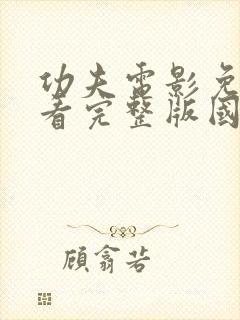 功夫电影免
看完整版國
顧翕若